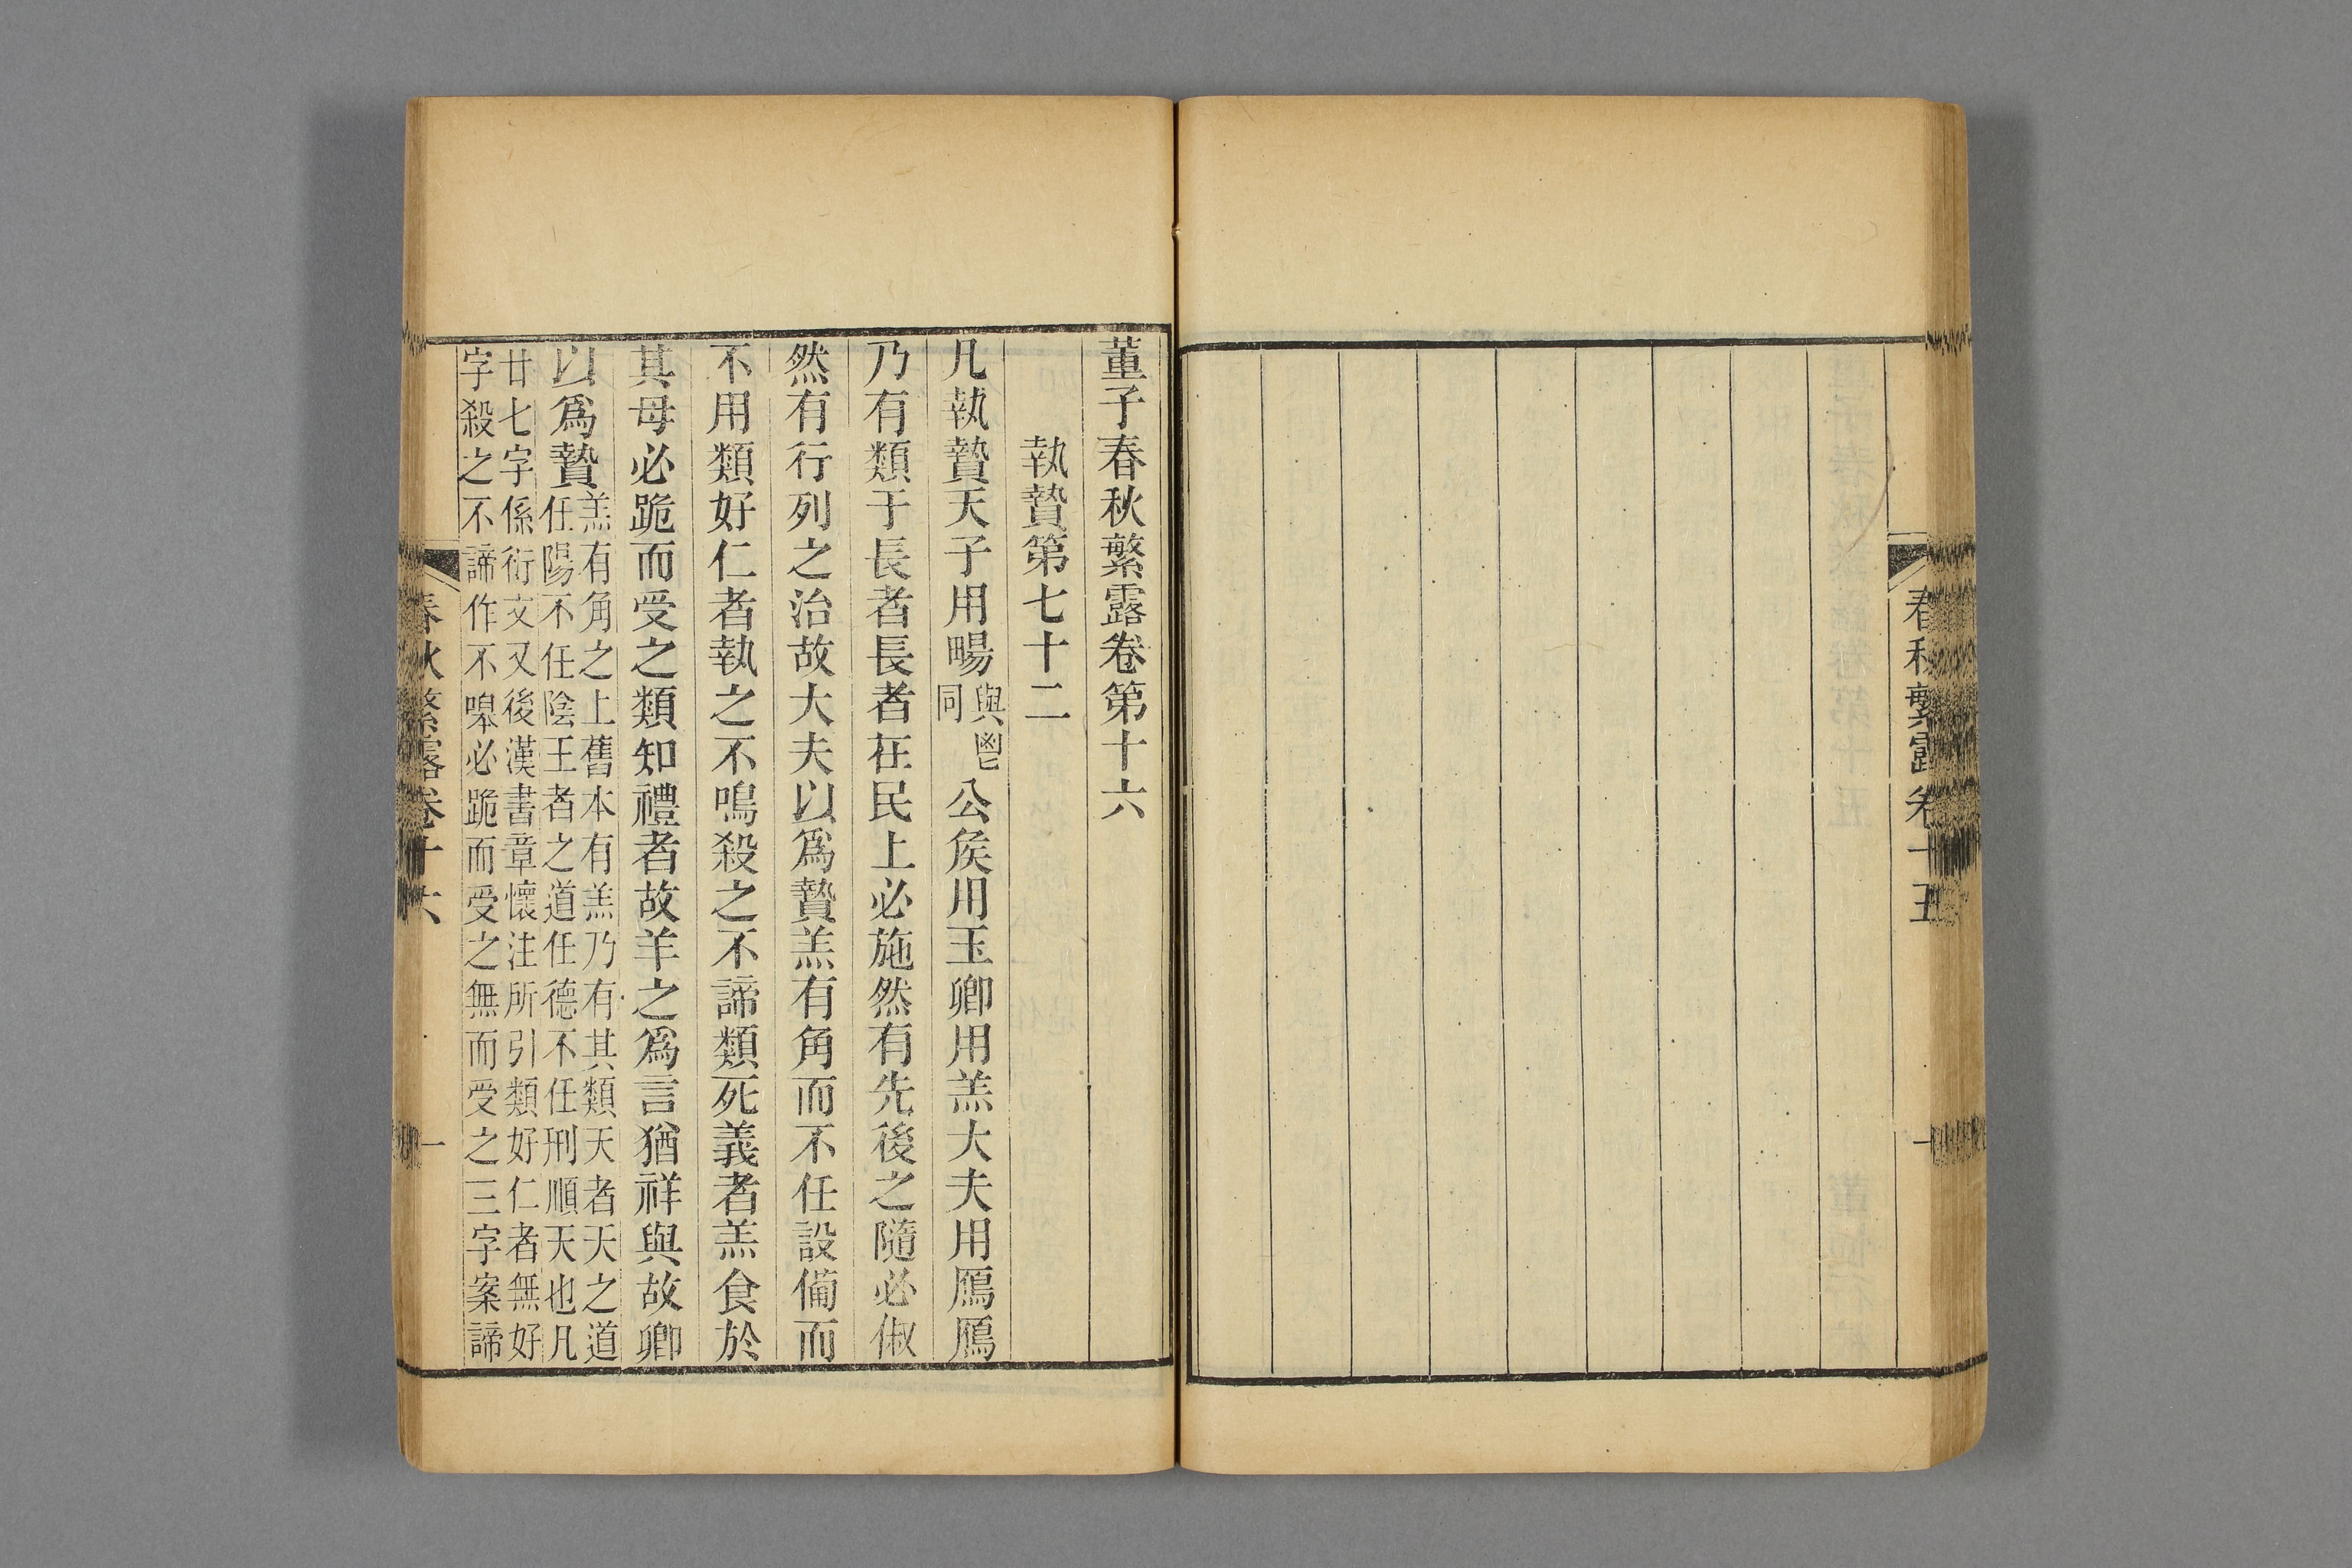 春秋繁露卷十五
一
董子春秋繁露卷第十六
執贄第七十二
凡執贄天子用暢與鬯同公矦用玉卿用羔大夫用鴈鴈
乃有類于長者長者在民上必施然有先後之隨必俶
然有行列之治故大夫以爲贄羔有角而不任設備而
不用類好仁者執之不鳴殺之不諦類死義者羔食於
其母必跪而受之類知禮者故羊之爲言猶祥與故卿
以爲贄羔有角之上舊本有羔乃有其類天者天之道
任陽不任陰王者之道任德不任刑順天也凡
廿七字係衍文又後漢書章懷注所引類好仁者無好
字殺之不諦作不嘷必跪而受之無而受之三字案諦
春秋繁露卷十六
一